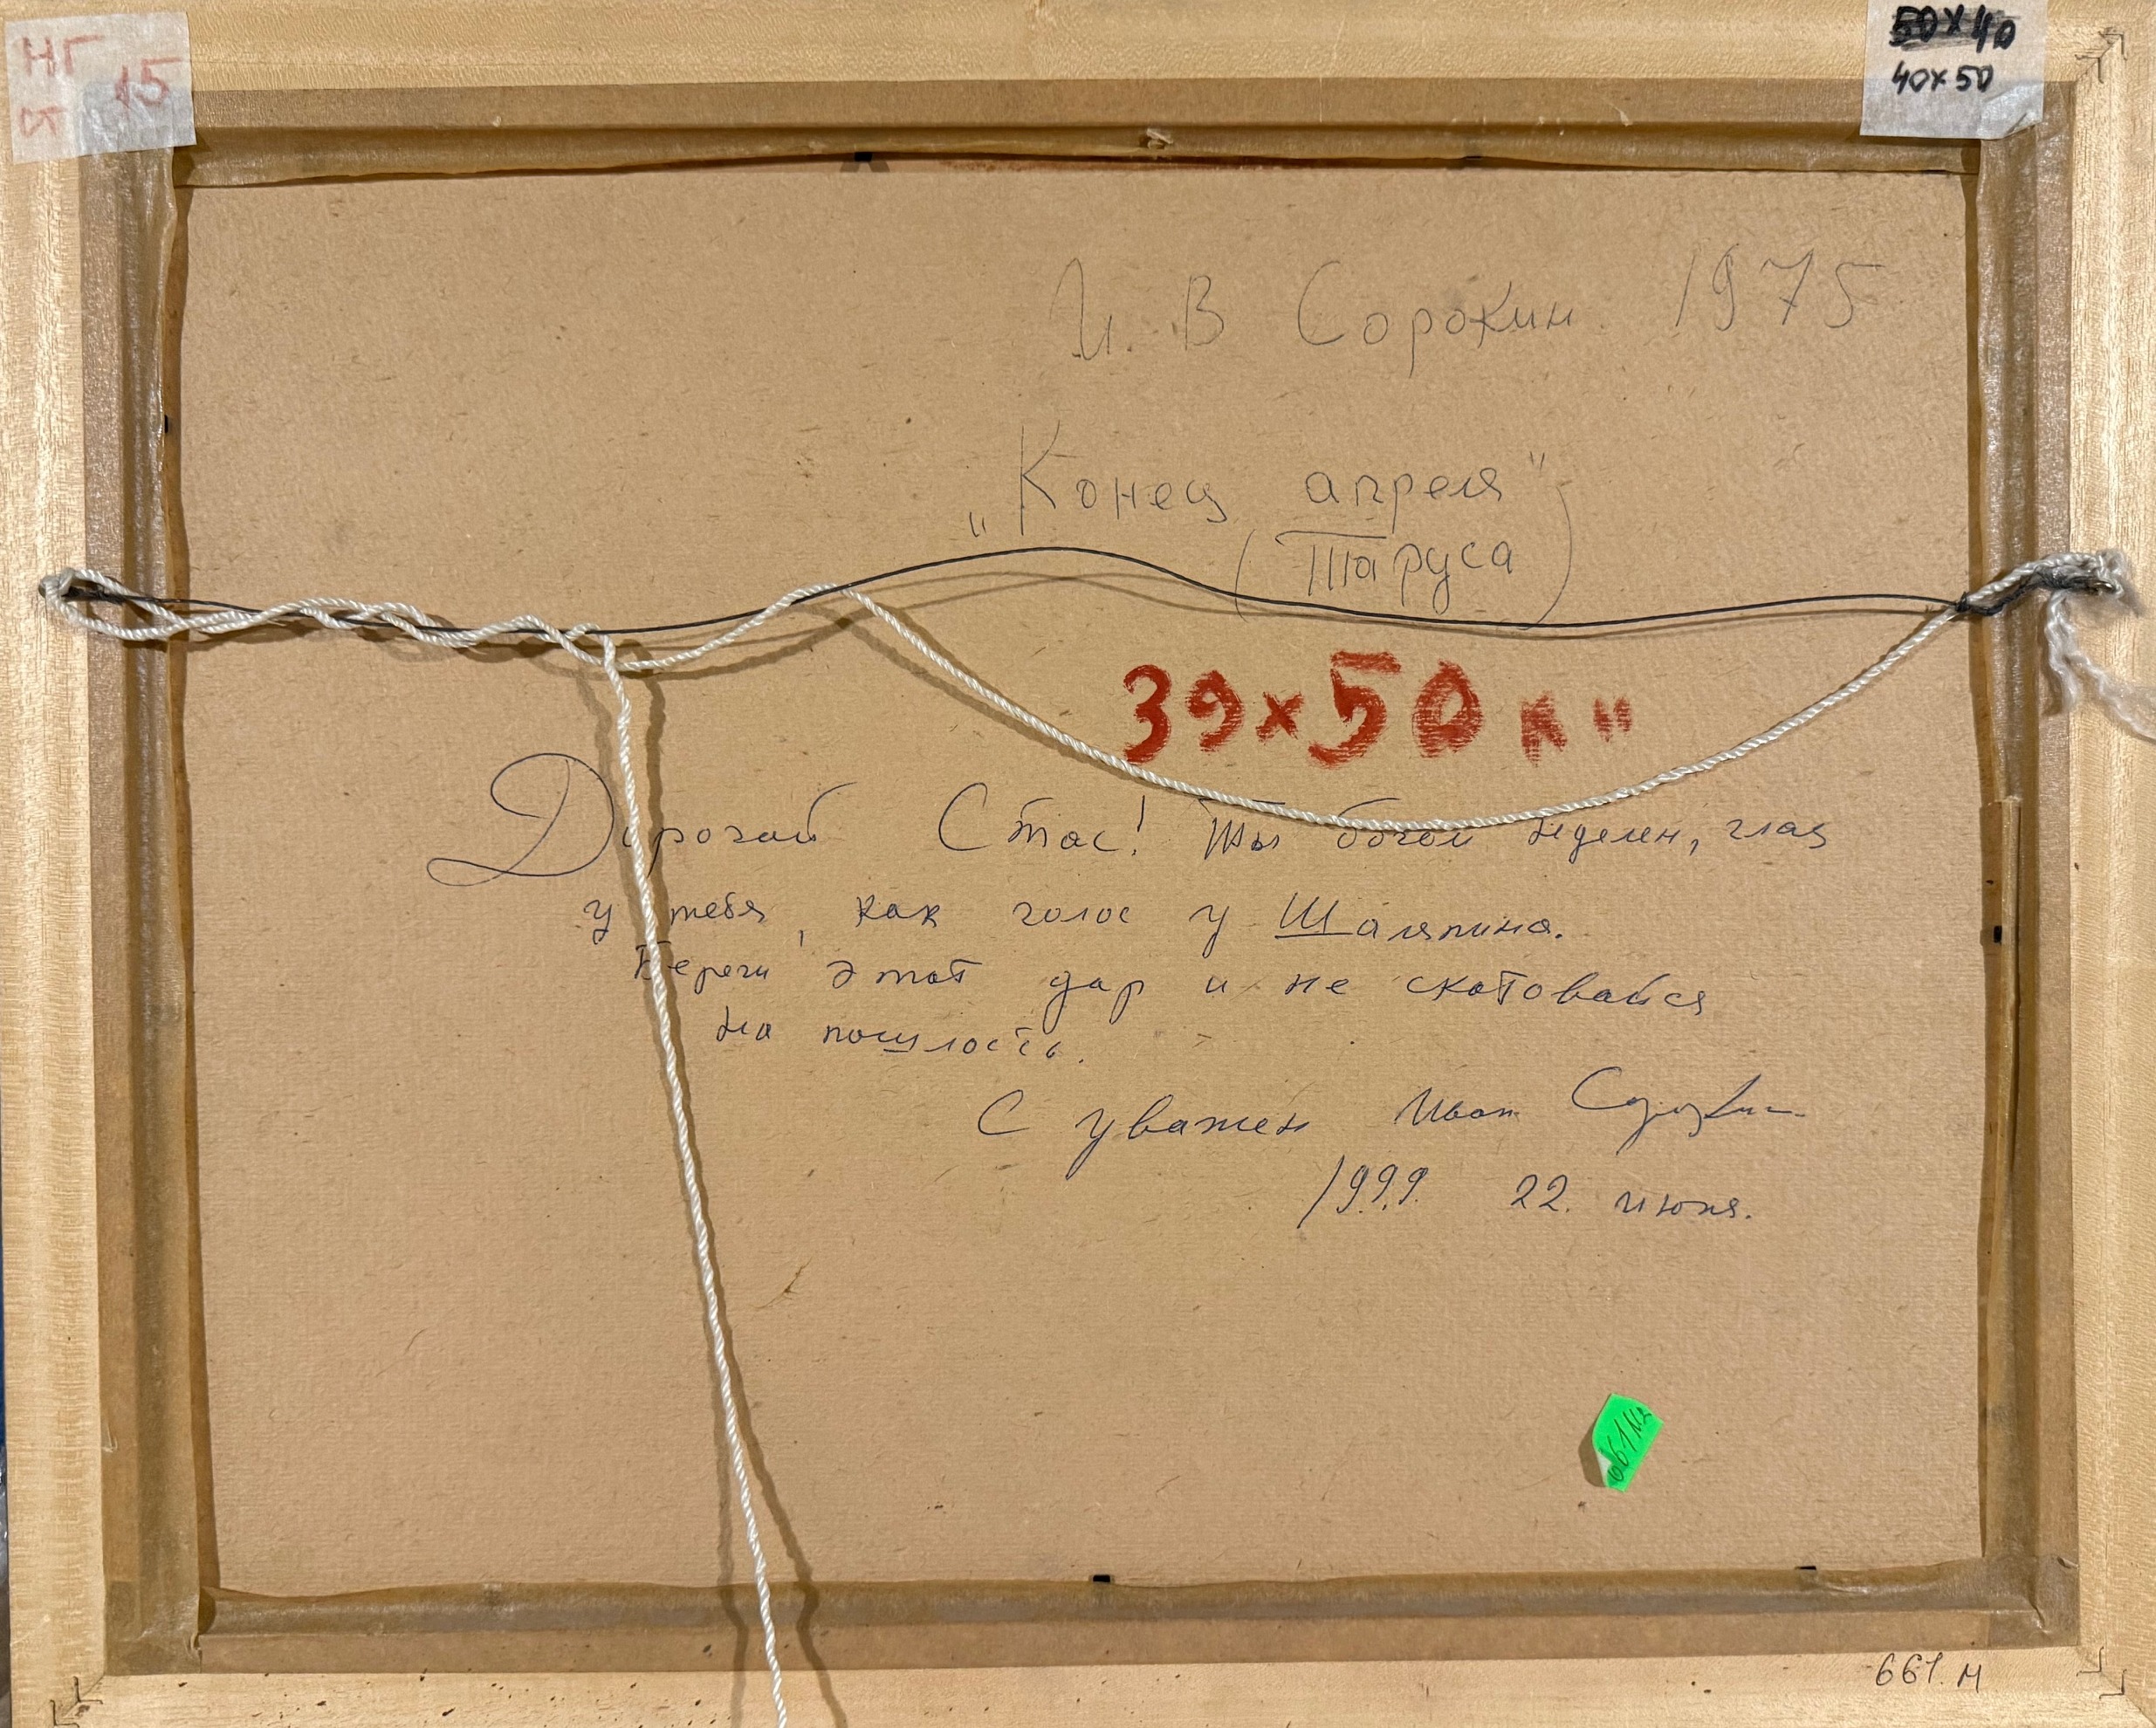 НГ
15
50x40
40x50
И. В Сорокин. 1975
„Конец апреля"
(Таруса)
39x50 к"
Дорогой Стас! Ты богом наделен, глаз
у тебя, как голос у Шаляпина.
Береги этот дар и не
на пошлость.
С уважен Иван Сорокин
1999. 22. июня.
661 М
661. М